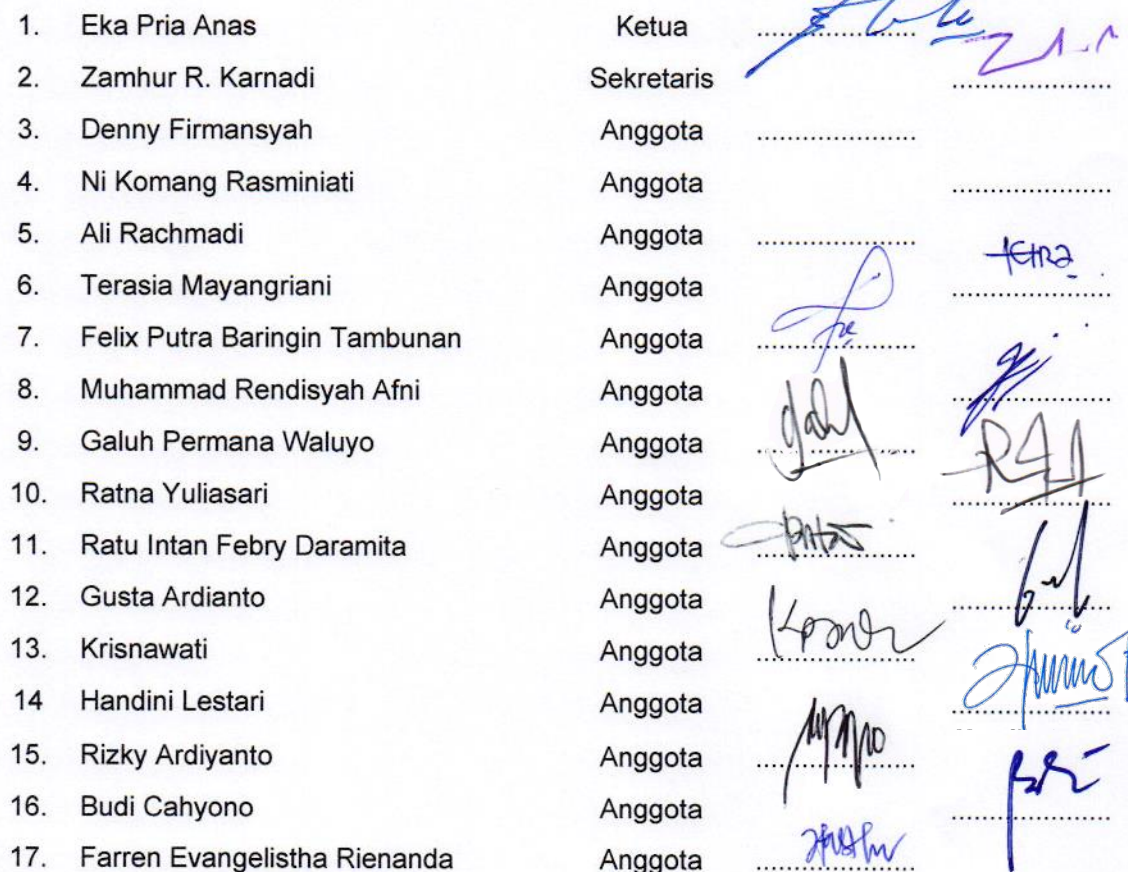 1. Eka Pria Anas Ketua ....................
2. Zamhur R. Karnadi Sekretaris ....................
3. Denny Firmansyah Anggota ....................
4. Ni Komang Rasminiati Anggota ....................
5. Ali Rachmadi Anggota ....................
6. Terasia Mayangriani Anggota ....................
7. Felix Putra Baringin Tambunan Anggota ....................
8. Muhammad Rendisyah Afni Anggota ....................
9. Galuh Permana Waluyo Anggota ....................
10. Ratna Yuliasari Anggota ....................
11. Ratu Intan Febry Daramita Anggota ....................
12. Gusta Ardianto Anggota ....................
13. Krisnawati Anggota ....................
14 Handini Lestari Anggota ....................
15. Rizky Ardiyanto Anggota ....................
16. Budi Cahyono Anggota ....................
17. Farren Evangelistha Rienanda Anggota ....................